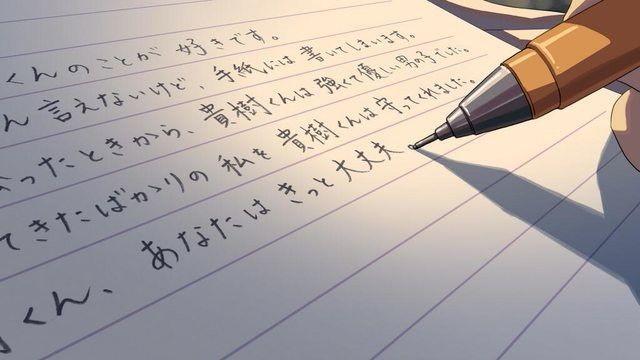 くんのことが好きです。
ん言えないけど、手紙には書いてしまいます。
ったときから、貴樹くんは強くて優しい男の子でした。
てきたばかりの私を貴樹くんは守ってくれました。
くん、あなたはきっと大丈夫。